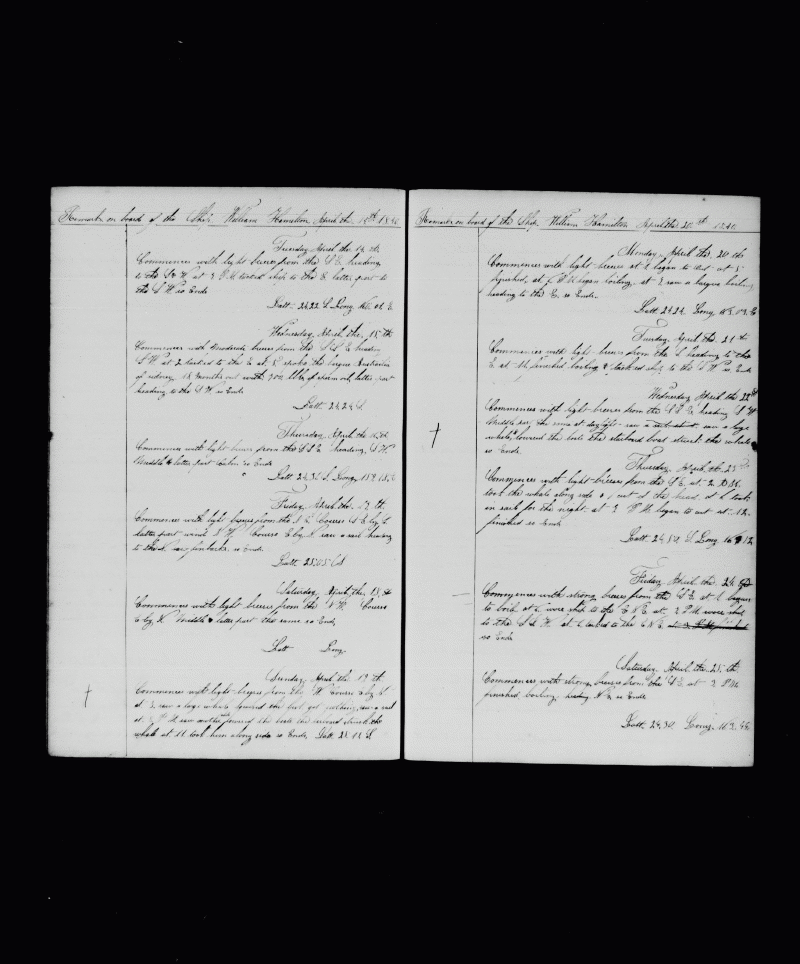 Remarks on board of the Ship William Hamilton April the 1840
Tuesday April the 14 th
Commences with light breeses from the S E heading
to the S W at 3 P M tacked ship to the E latter part to
the S W so Ends
Latt 24.22 S Long
Wednesday April the 15 th
Commences with moderate breeses from the S S E heading
S W at 2 tacked to the E at 5 spoke the barque Australian
of sidney 18 months out with 300 bbls of sperm oil latter part
heading to the S W so Ends
Latt 24.24 S
Thursday April the 16 th
Commences with light breeses from the S S E heading S W
Middle & latter part so Ends
Latt 24.36 S Long
Friday April the 17 th
Commences with light breeses from the Course
latter part wind N W Course E by N saw a sail heading
to the saw finbacks so Ends
Latt 25.05
Saturday April the 18 th
Commences with light breeses from the N W Course
E by N Middle & latter part the same so Ends
Latt Long
Sunday April the 19 th
Commences with light breeses from the W Course E by
at saw a large whale lowered the boat got nothing saw a sail
at P M saw another lowered the boats the larboard struck the
whale at 11 took him along side so Ends Latt
Remarks on board of the Ship William Hamilton April the 20 1840
Monday April the 20 th
Commences with light breeses at began to cut at 5
finished at 6 P M began boiling at saw a barque boiling
heading to the E so Ends
Latt 24.24 Long
Tuesday April the 21 th
Commences with light breeses from the S heading to the
E at finished boiling & tacked ship to the S W so Ends
Wednesday April the 22
Commences with light breeses from the S S E heading S W
Middle part the same at daylight saw a saw a large
whale lowered the boats the starboard boat struck the whale
so Ends
Thursday April the 23
Commences with light breeses from the S E at 2 P M
took the whale along side cut at the head at 6 took
in sail for the night at P M began to cut at 12
finished so Ends
Latt S Long
Friday April the 24
Commences with strong breeses from the S E at began
to boil at wore ship to the E N E at 2 P M wore ship
to the S S W at tacked to the E N E
so Ends
Saturday April the 25 th
Commences with strong breeses from the S E at 2 P M
finished boiling heading N E so Ends
Latt 24.34 Long